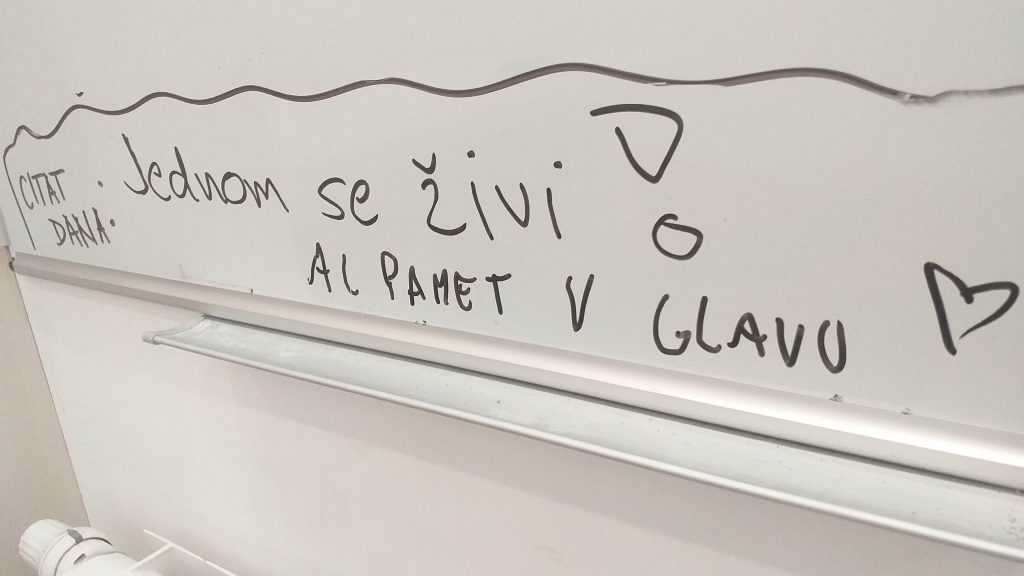 CITAT
DANA:
Jednom se živi!
AL PAMET V GLAVU